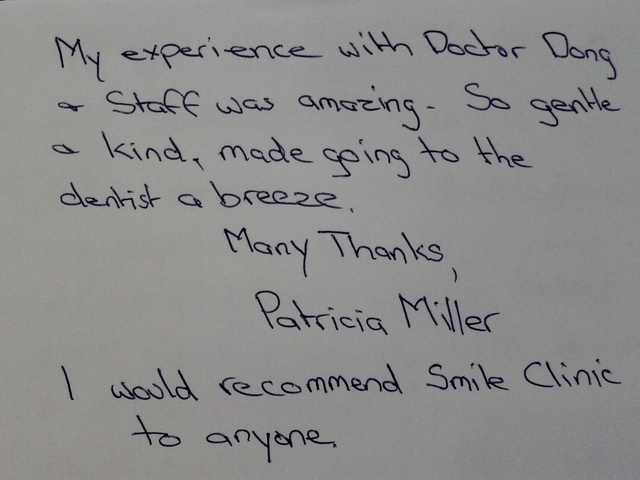 My experience with Doctor Dong
& Staff was amazing. So gentle
& kind, made going to the
dentist a breeze.
Many Thanks,
Patricia Miller
I would recommend Smile Clinic
to anyone.